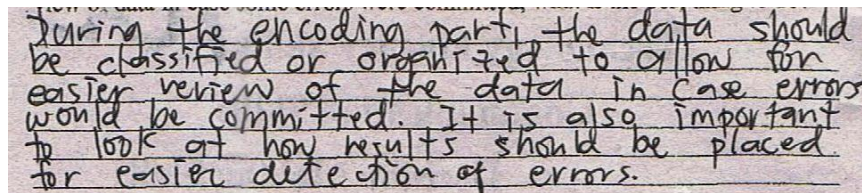 During the encoding part, the data should
be classified or organized to allow for
easier review of the data in case errors
would be committed. It is also important
to look at how results should be placed
for easier detection of errors.